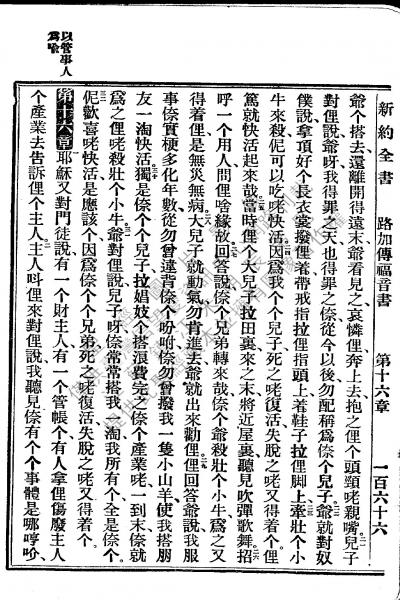 新約全書 路加傳福音書 第十六章 一百六十六
爺个搭去、還離開得遠末爺看見之哀憐俚奔上去抱之俚个頭頸咾親嘴兒子
對俚說爺呀我得罪之天也得罪之倷從今以後勿配稱爲倷个兒子爺就對奴
僕說拿頂好个長衣裳撥俚着帶戒指拉俚指頭上着鞋子拉俚脚上牽壯个小
牛來殺伲可以吃咾快活因爲我个个兒子死之咾復活失脫之咾又得着个俚
篤就快活起來哉當時俚个大兒子拉田裏來之末將近屋裏聽見吹彈歌舞招
呼一个用人問俚啥緣故回答說倷个兄弟轉來哉倷个爺殺壯个小牛爲之又
得着俚是無災無病大兒子就動氣勿肯進去爺就出來勸俚俚回答爺說我服
事倷實梗多化年數從勿曾違背倷个吩咐倷勿曾撥我一隻小山羊使我搭朋
友一淘快活獨是倷个个兒子拉娼妓个搭浪費完之倷个產業咾一到末倷就
爲之俚咾殺壯个小牛爺對俚說兒子呀倷常常搭我一淘我所有个全是倷个
伲歡喜咾快活是應該个因爲倷个个兄弟死之咾復活失脫之咾又得着个
第十六章 耶穌又對門徒說有一个財主人有一个管帳个有人拿俚傷廢主人
个產業去告訴俚个主人主人呌俚來對俚說我聽見倷有个个事體是哪哼
以管事人
爲喩